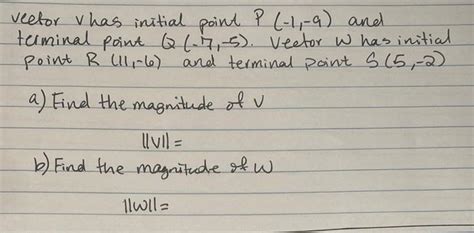 vector v has initial point P (-1,-9) and
terminal point Q (-7,-5). Vector W has initial
point R (11,-6) and terminal point S (5,-2)
a) Find the magnitude of V
||V|| =
b) Find the magnitude of W
||W|| =